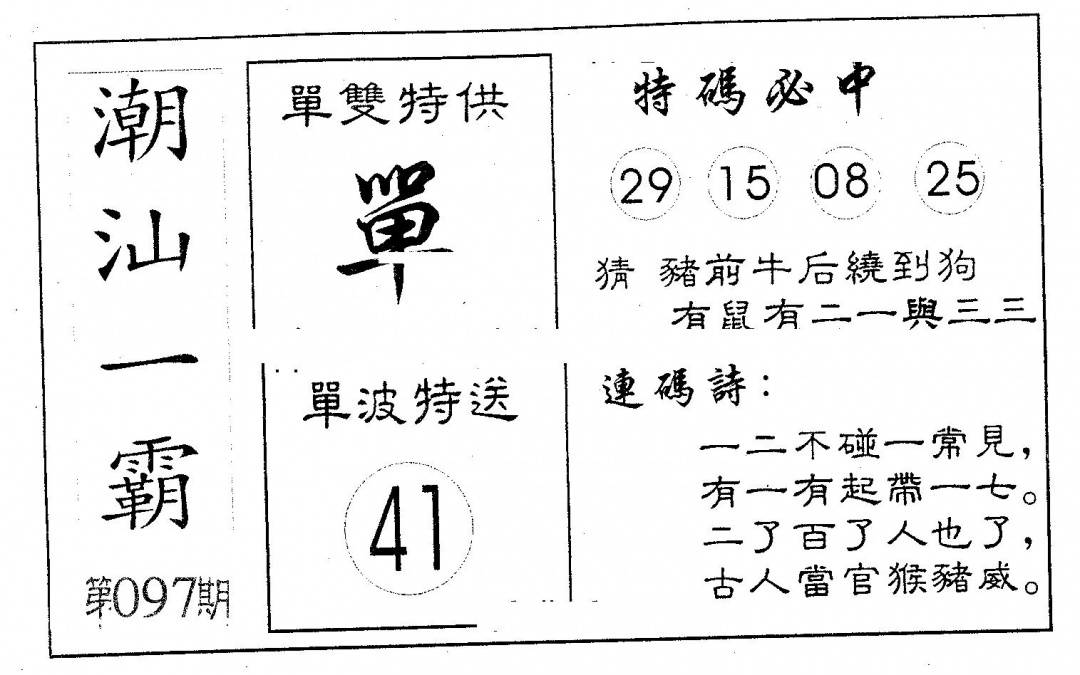 潮汕一霸
第097期
單雙特供
單
單波特送
41
特碼必中
29 15 08 25
猜 豬前牛后繞到狗
有鼠有二一與三三
連碼詩:
一二不碰一常見,
有一有起帶一七。
二了百了人也了,
古人當官猴豬威。